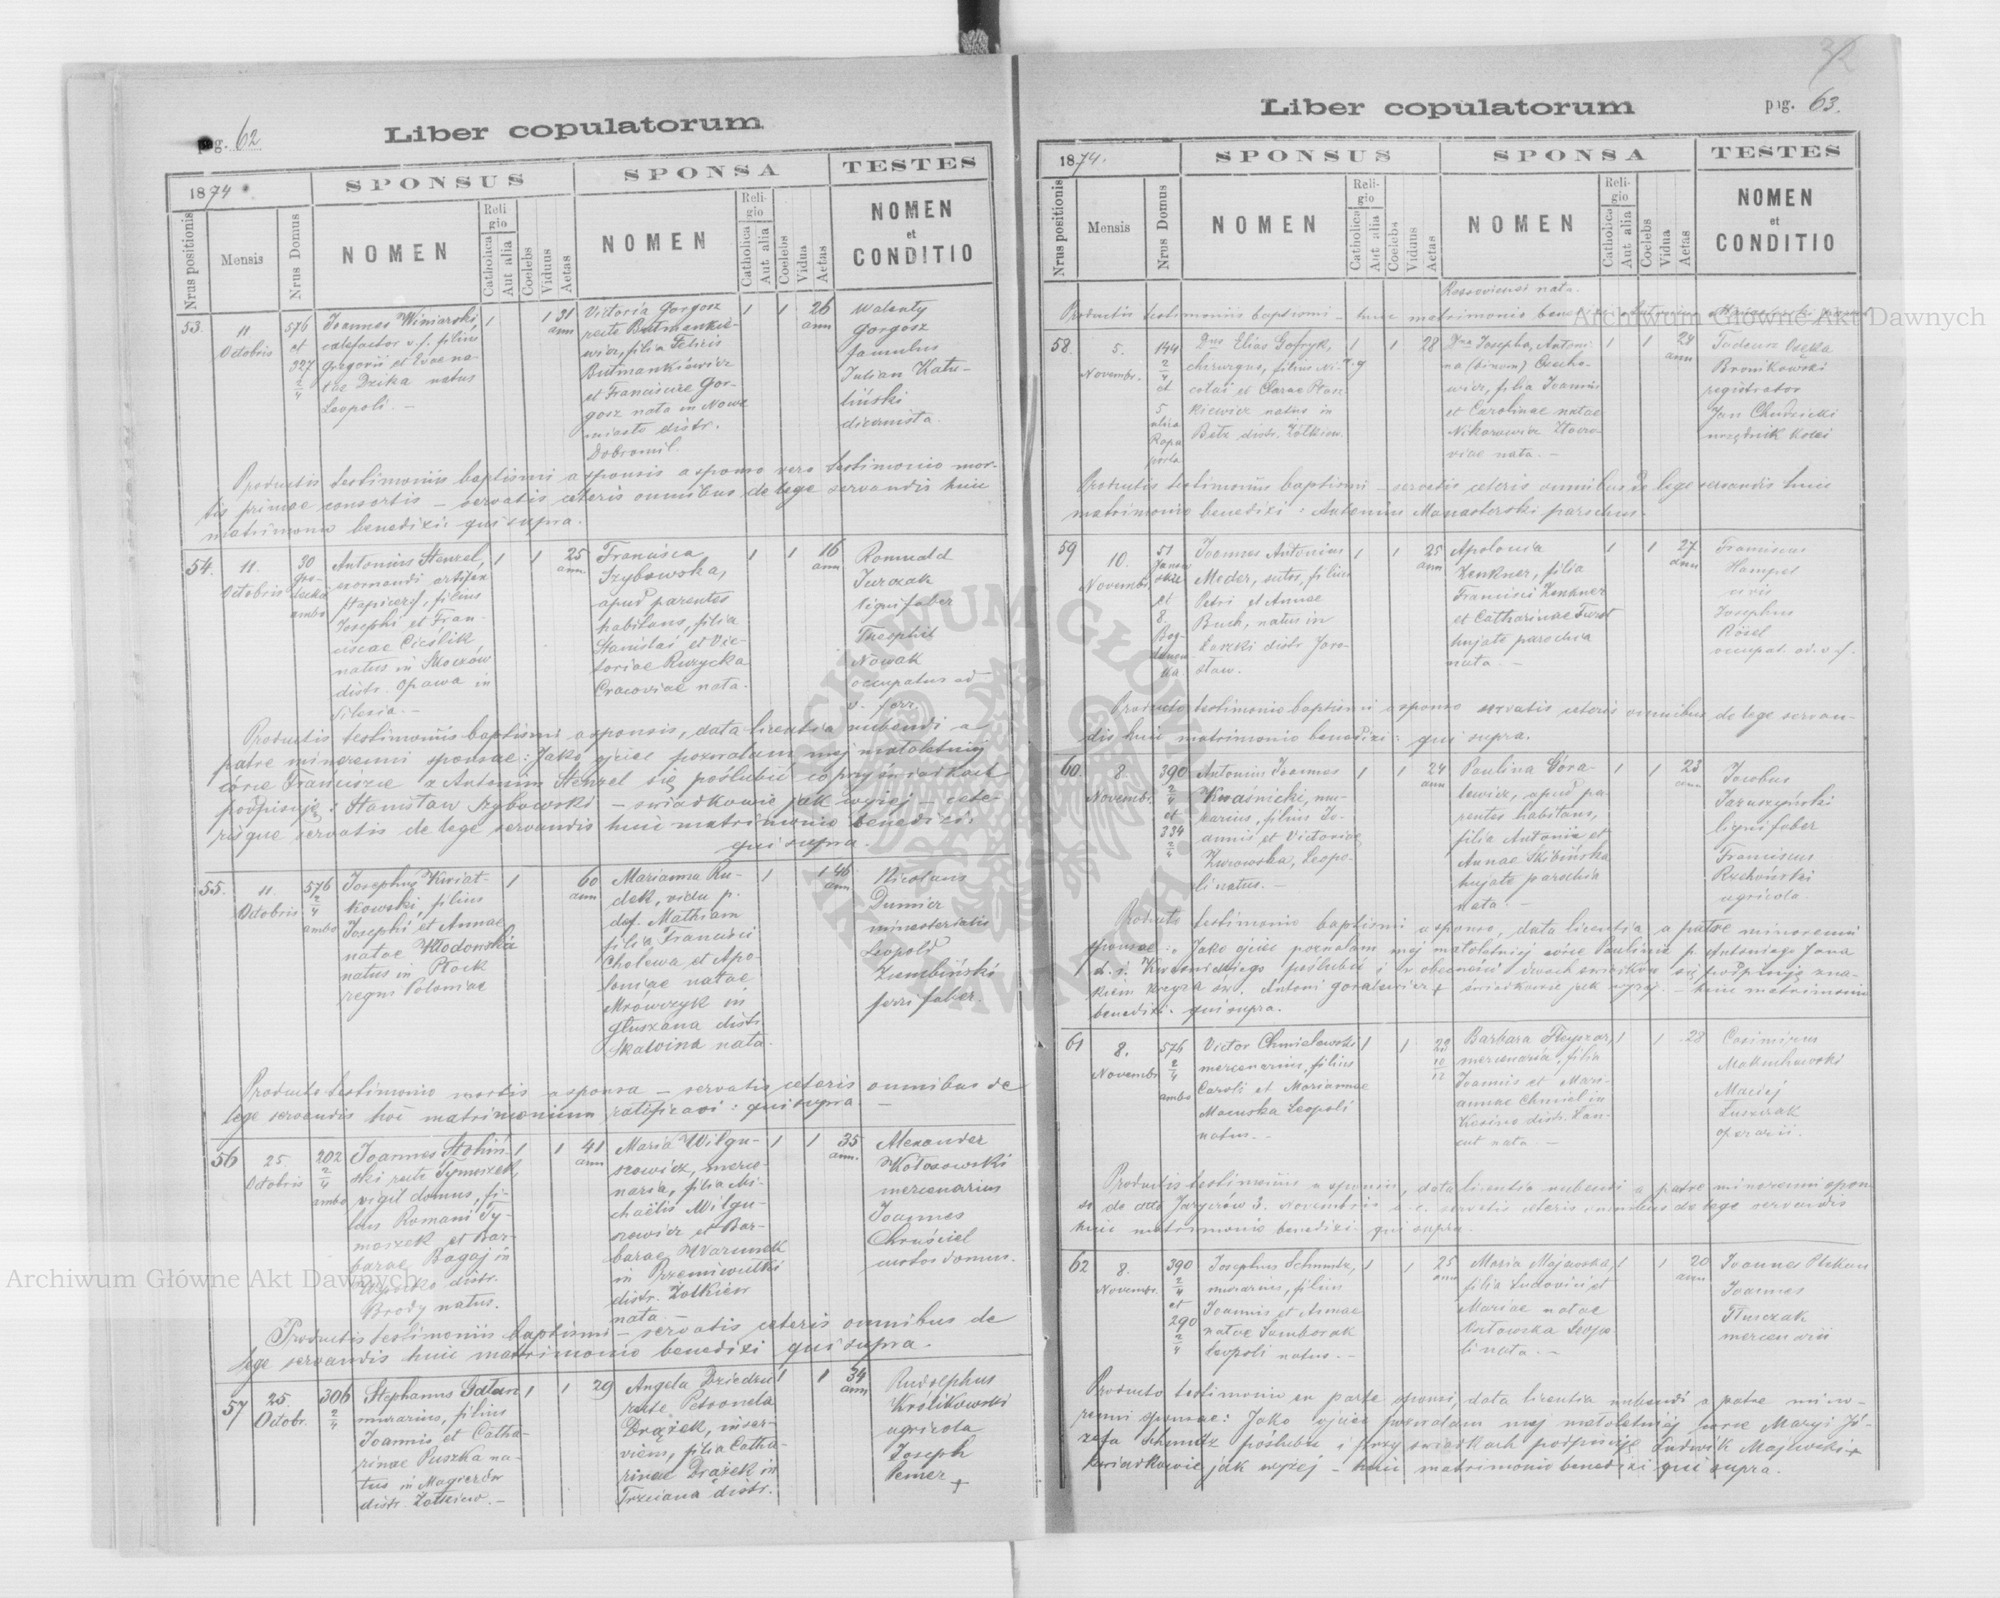 pag. 62
Liber copulatorum
1874
SPONSUS
SPONSA
TESTES
Nrus positionis
Mensis
Nrus Domus
NOMEN
Religio
Catholica
Aut alia
Coelebs
Viduus
Aetas
NOMEN
Religio
Catholica
Aut alia
Coelebs
Vidua
Aetas
NOMEN
et
CONDITIO
53.
11
Octobris
576
et
327
2/4
Joannes Winiarski
calefactor v. f. filius
Gregorii et Evae na-
tae Dzika natus
Leopoli. —
1
1
31
ann
Victoria Gorgosz
recte Butmankie-
wicz, filia Felicis
Butmankiewicz
et Franciscae Gor-
gosz nata in Nowe
miasto distr.
Dobromil.
1
1
26
ann
Walenty
Gorgosz
famulus
Julian Katu-
liński
dicarnista
Productis testimoniis baptismi a sponsis a sponso vero testimonio mor-
tis primae consortis — servatis ceteris omnibus de lege servandis huic
matrimonio benedixi: qui supra.
54.
11.
Octobris
30
Gro-
decka
ambo
Antonius Stenzel,
exornandi artifex
(tapicer), filius
Josephi et Fran-
ciscae Cieślik,
natus in Skoczów
distr. Opawa in
Silesia. —
1
1
25
ann.
Francisca
Szybowska,
apud parentes
habitans, filia
Stanislai et Vic-
toriae Ruzycka
Cracoviae nata.
1
1
16
ann
Romuald
Jurczak
lignifaber
Theophil
Nowak
occupatus ad
v. ferr.
Productis testimoniis baptismi a sponsis, data licentia nubendi a
patre minorenni sponsae: Jako ojciec pozwalam mej małoletniej
córce Franciszce z Antonim Stenzel się poślubić co przy świadkach
podpisuję: Stanisław Szybowski — świadkowie jak wyżej — cete-
risque servatis de lege servandis huic matrimonio benedixi:
qui supra.
55.
11
Octobris
576
2/4
ambo
Josephus Kwiat-
kowski, filius
Josephi et Annae
natae Kłodowska
natus in Płock
regni Poloniae
1
60
ann
Marianna Ru-
dek, vidua p.
def. Mathiam
filia Francisci
Cholewa et Apo-
loniae natae
Mrówczyk in
Głuszana distr.
Skawina nata.
1
1
46
ann
Nicolaus
Dumicz
ministerialis
Leopold
Ziembiński
ferri faber.
Producto testimonio mortis a sponsa — servatis ceteris omnibus de
lege servandis hoc matrimonium ratificavi: qui supra —
56
25
Octobris
202
2/4
ambo
Joannes Stohiń-
ski recte Tymoszek,
vigil domus, fi-
lius Romani Ty-
moszek et Bar-
barae Bagaj in
distr.
Brody natus.
1
1
41
ann
Maria Wilgu-
szowicz, merce-
naria, filia Mi-
chaëlis Wilgu-
szowicz et Bar-
barae Waruszek
in Przemiwulki
distr. Żółkiew
nata —
1
1
35
ann.
Alexander
Kołosowski
mercenarius
Joannes
Chruściel
custos domus.
Productis testimoniis baptismi — servatis ceteris omnibus de
lege servandis huic matrimonio benedixi qui supra.
57
25.
Octobr.
306
2/4
Stephanus Gałan
murarius, filius
Joannis et Catha-
rinae Puszka na-
tus in Magierów
distr. Żółkiew. —
1
1
29
Angela Dziedzic
recte Petronela
Drążek, inser-
viens, filia Catha-
rinae Drążek in
Trzciana distr.
1
1
34
ann
Rudolphus
Królikowski
agricola
Joseph
Pemer +
pag. 63.
Liber copulatorum
1874.
SPONSUS
SPONSA
TESTES
Nrus positionis
Mensis
Nrus Domus
NOMEN
Religio
Catholica
Aut alia
Coelebs
Viduus
Aetas
NOMEN
Religio
Catholica
Aut alia
Coelebs
Vidua
Aetas
NOMEN
et
CONDITIO
Rzeszoviensi nata.
Productis testimoniis baptismi — huic matrimonio benedixi Antonius
58
5.
Novembr.
144
2/4
et
5
ulica
Rapa
porta
Dnus Elias Gofryk,
chirurgus, filius Ni-
colai et Clarae Ptasz-
kiewicz natus in
Bełz distr. Żółkiew.
1
1
28
Dna Josepha, Antoni-
na (binom) Czecho-
wicz, filia Joannis
et Carolinae natae
Nikorowicz Złoczo-
viae nata. —
1
1
24
ann
Tadeusz Osęka
Bronikowski
registrator
Jan Chudzicki
urzędnik kolei
Productis testimoniis baptismi — servatis ceteris omnibus de lege servandis huic
matrimonio benedixi: Antonius Manasterski parochus.
59
10.
Novembr.
51
Janow
skie
et
8
Bog-
danow
ka.
Joannes Antonius
Meder, sutor, filius
Petri et Annae
Buch, natus in
Łaszki distr. Jaro-
sław.
1
1
25
ann
Apolonia
Zenkner, filia
Francisci Zenkner
et Catharinae Furst
hujate parochia
nata. —
1
1
27
ann
Franciscus
Hampel
civis
Josephus
Rösel
occupat. ad. v. f.
Producto testimonio baptismi a sponso servatis ceteris omnibus de lege servan-
dis huic matrimonio benedixi: qui supra.
60.
8.
Novembr.
390
2/4
et
334
2/4
Antonius Joannes
Kwaśnicki, mu-
rarius, filius Jo-
annis et Victoriae
Żurowska, Leopo-
li natus. —
1
1
24
ann
Paulina Góra-
lewicz, apud pa-
rentes habitans,
filia Antonii et
Annae Skibińska
hujate parochia
nata. —
1
1
23
ann
Jacobus
Jaruszyński
lignifaber
Franciscus
Rzehoński
agricola.
Producto testimonio baptismi a sponso, data licentia a patre minorenni
sponsae: Jako ojciec pozwalam mej małoletniej córce Paulinie p. Antoniego Jana
d. i. Kwaśnickiego poślubić i w obecności dwóch świadków się podpisuję zna-
kiem krzyża św. Antoni Goralewicz + świadkowie jak wyżej. — huic matrimonio
benedixi. qui supra.
61
8.
Novembr
576
2/4
ambo
Victor Chmielowski
mercenarius, filius
Caroli et Mariannae
Macuska Leopoli
natus. —
1
1
23
10/12
Barbara Fleyszar,
mercenaria, filia
Joannis et Mari-
annae Chmiel in
Kosina distr. Łan-
cut nata. —
1
1
28
Casimirus
Makuchowski
Maciej
Łuszczak
operarii.
Productis testimoniis a sponsis, data licentia nubendi a patre minorenni spon-
si do dto Jaryczów 3. Novembris a. c. servatis ceteris omnibus de lege servandis
huic matrimonio benedixi qui supra.
62
8.
Novembr.
390
2/4
et
290
2/4
Josephus Schmutz,
murarius, filius
Joannis et Annae
natae Samborak
Leopoli natus. —
1
1
25
ann
Maria Majewska,
filia Ludovici et
Mariae natae
Leopo-
li nata. —
1
1
20
ann
Joannes Plekan
Joannes
Tłuszczak
mercenarii
Producto testimonio ex parte sponsi, data licentia nubendi a patre mino-
renni sponsae: Jako ojciec pozwalam mej małoletniej córce Maryi Jó-
zefa Schmutz poślubić i przy świadkach podpisuję Ludwik Majewski +
świadkowie jak wyżej — huic matrimonio benedixi qui supra.
Archiwum Główne Akt Dawnych
Archiwum Główne Akt Dawnych
ARCHIWUM GŁÓWNE AKT DAWNYCH